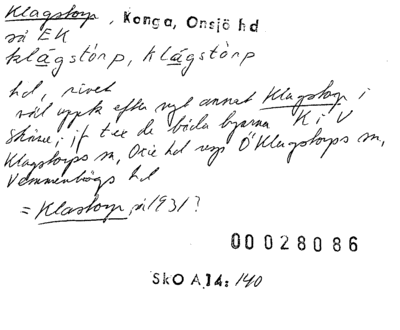 Klagstorp, Konga, Onsjö hd
så EK
klágstòrp, klágstòrp
hd, rivet
väl uppk efter ngt annat Klagstorp i
Skåne; jf t ex de båda byarna K i V
Klagstorps sn, Oxie hd resp Ö Klagstorps sn,
Vemmenhögs hd
= Klastorp, 1931?
00028086
SkO A14: 140